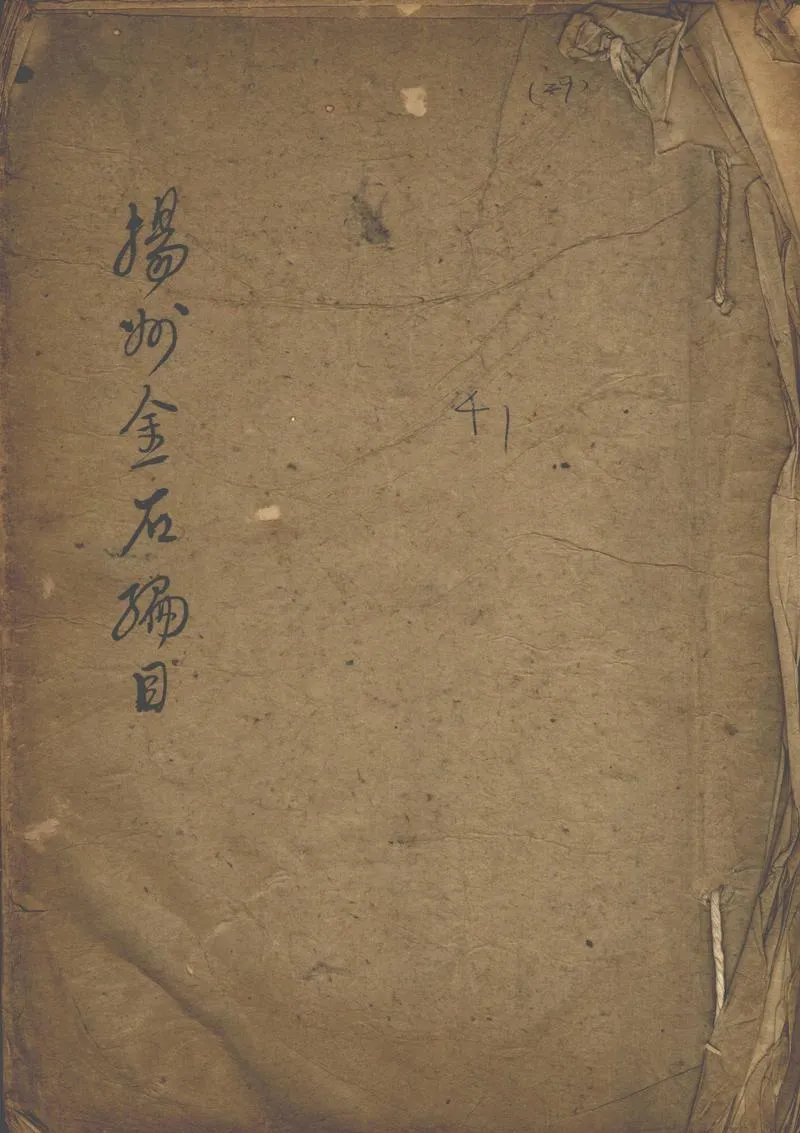 揚州金石編目
41